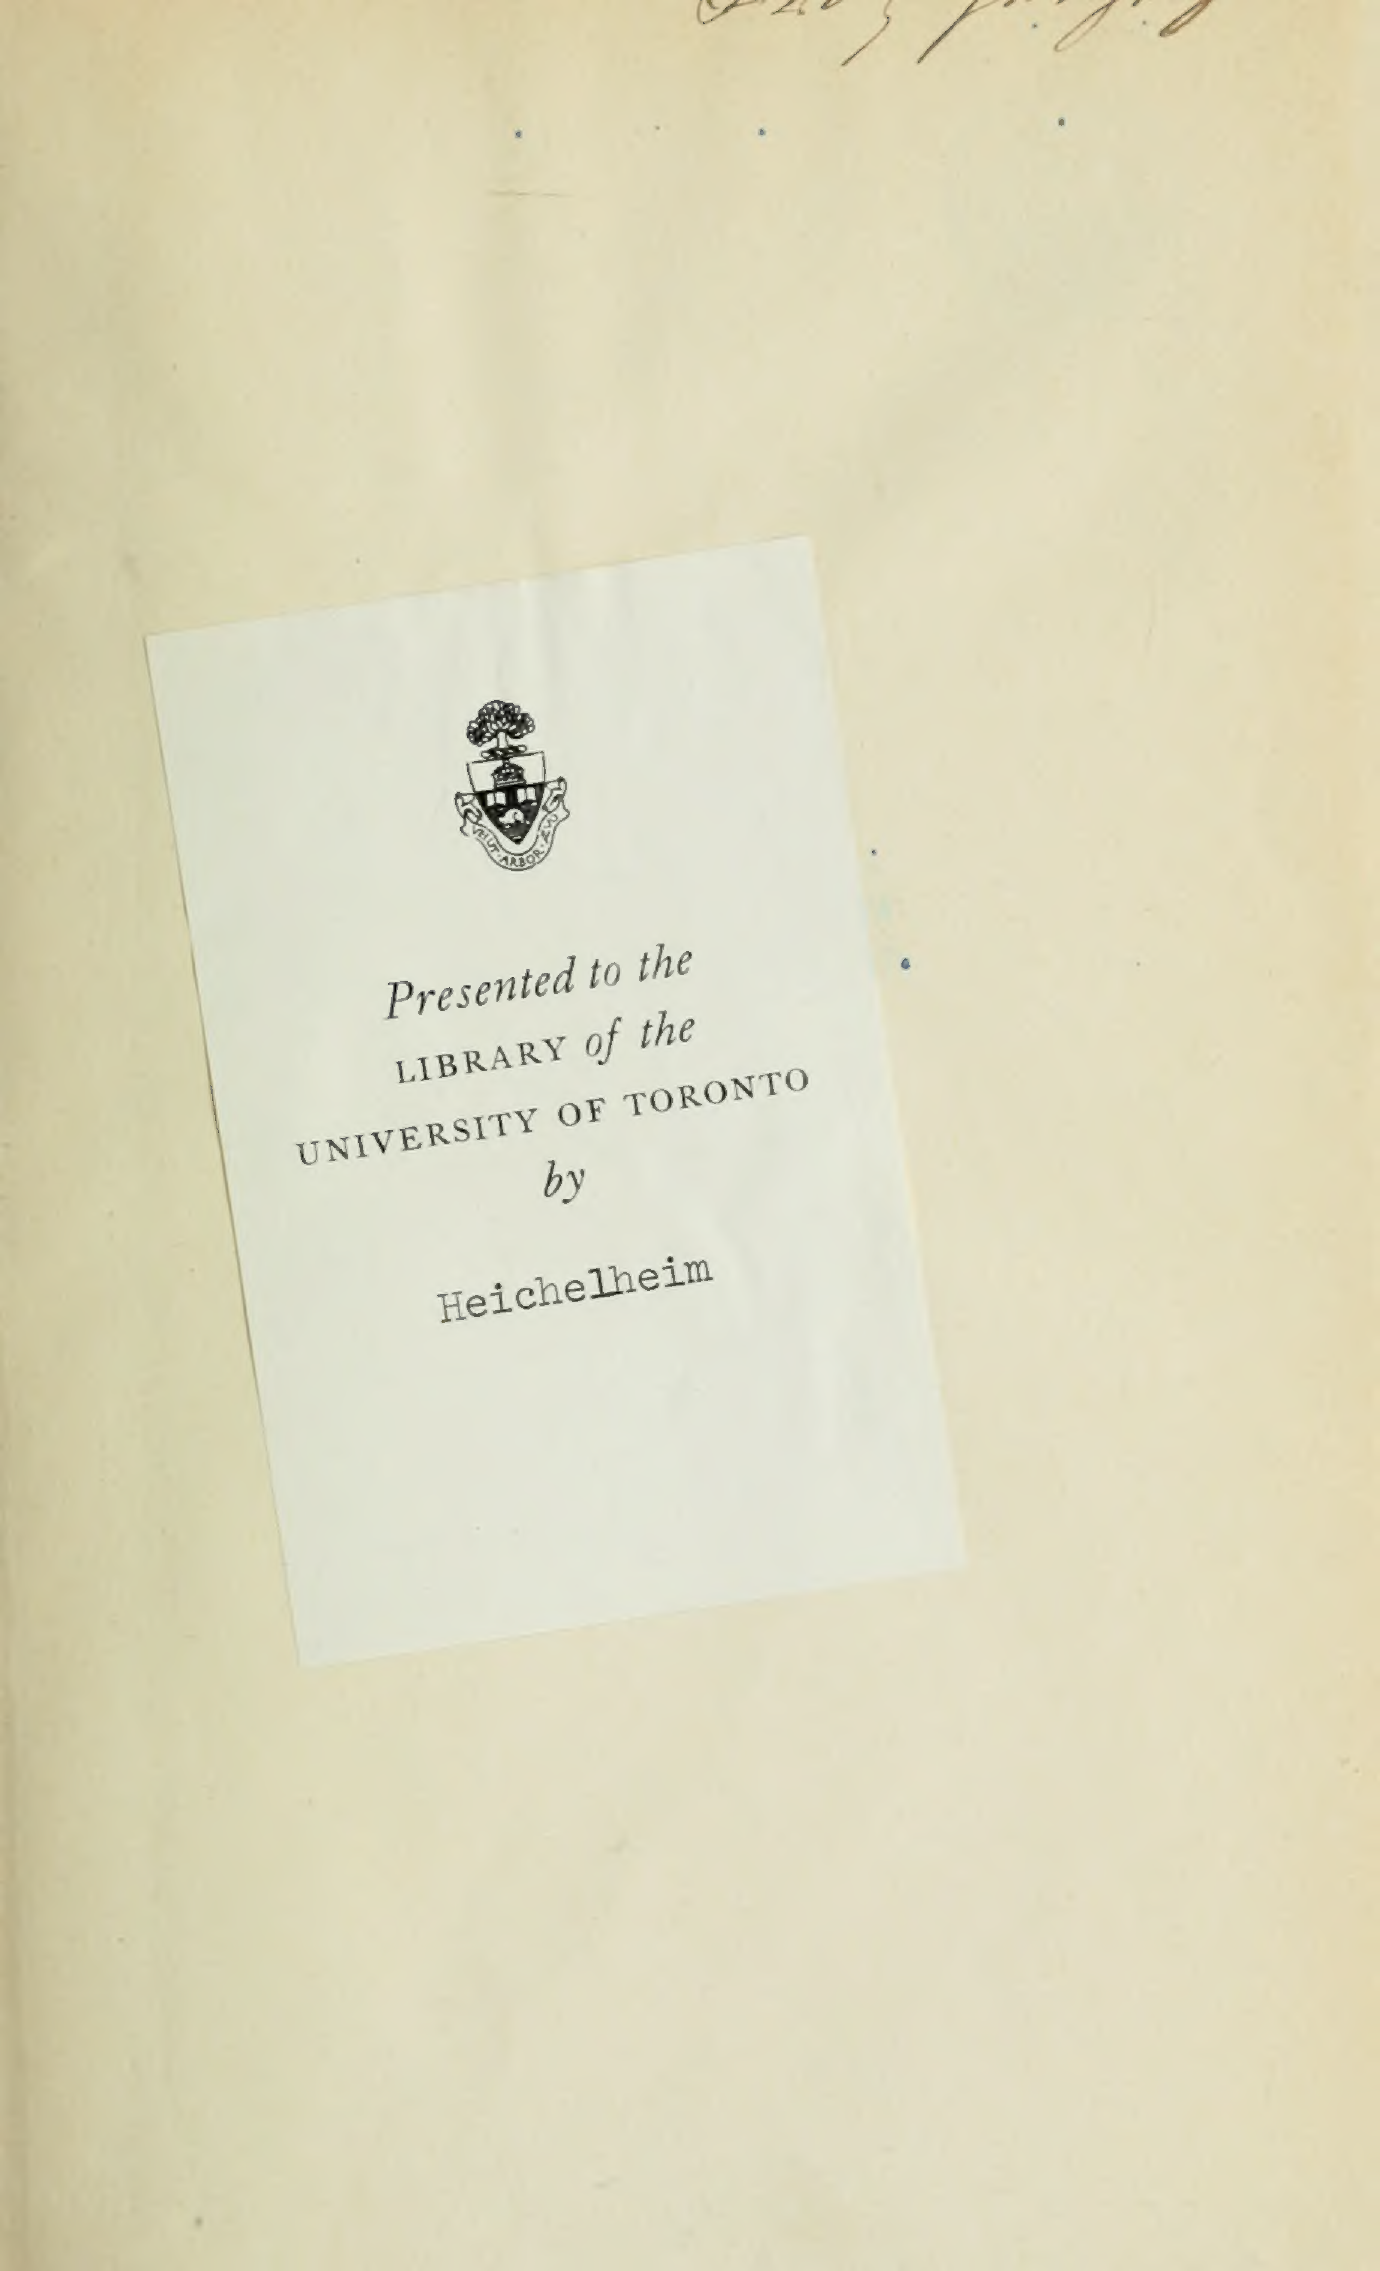 VELUT · ARBOR · ÆVO
Presented to the
LIBRARY of the
UNIVERSITY OF TORONTO
by
Heichelheim